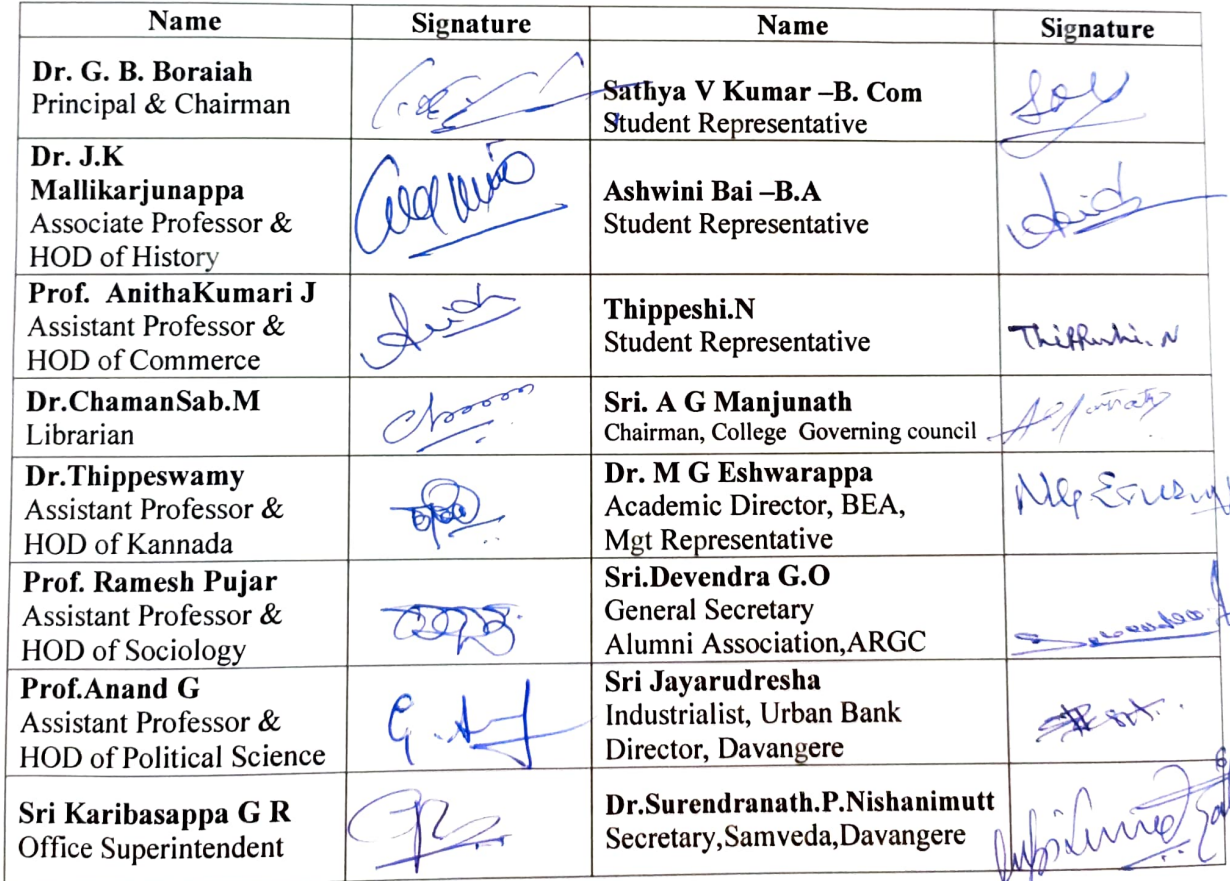 Name Signature Name Signature
Dr. G. B. Boraiah
Principal & Chairman
Sathya V Kumar –B. Com
Student Representative
Dr. J.K
Mallikarjunappa
Associate Professor &
HOD of History
Ashwini Bai –B.A
Student Representative
Prof. AnithaKumari J
Assistant Professor &
HOD of Commerce
Thippeshi.N
Student Representative
Thippeshi. N
Dr.ChamanSab.M
Librarian
Sri. A G Manjunath
Chairman, College Governing council
Dr.Thippeswamy
Assistant Professor &
HOD of Kannada
Dr. M G Eshwarappa
Academic Director, BEA,
Mgt Representative
Prof. Ramesh Pujar
Assistant Professor &
HOD of Sociology
Sri.Devendra G.O
General Secretary
Alumni Association,ARGC
Prof.Anand G
Assistant Professor &
HOD of Political Science
Sri Jayarudresha
Industrialist, Urban Bank
Director, Davangere
Sri Karibasappa G R
Office Superintendent
Dr.Surendranath.P.Nishanimutt
Secretary,Samveda,Davangere